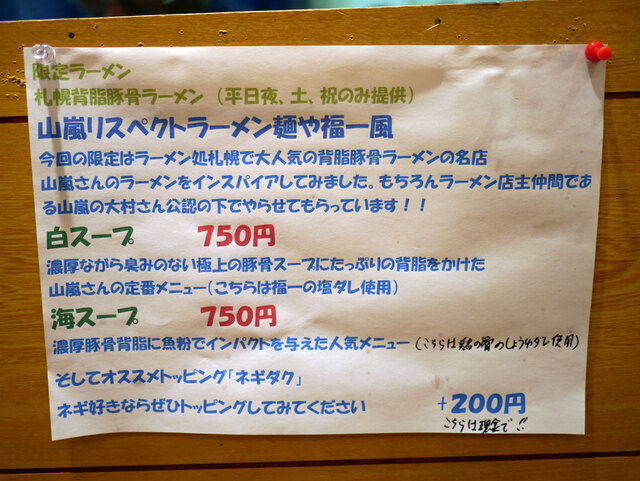 限定ラーメン
札幌背脂豚骨ラーメン（平日夜、土、祝のみ提供）
山嵐リスペクトラーメン麺や福一風
今回の限定はラーメン処札幌で大人気の背脂豚骨ラーメンの名店
山嵐さんのラーメンをインスパイアしてみました。もちろんラーメン店主仲間であ
る山嵐の大村さん公認の下でやらせてもらっています！！
白スープ 750円
濃厚ながら臭みのない極上の豚骨スープにたっぷりの背脂をかけた
山嵐さんの定番メニュー（こちらは福一の塩ダレ使用）
海スープ 750円
濃厚豚骨背脂に魚粉でインパクトを与えた人気メニュー（こちらは の骨のしょうゆダレ使用）
そしてオススメトッピング「ネギダク」
ネギ好きならぜひトッピングしてみてください +200円
こちらは現金で!!